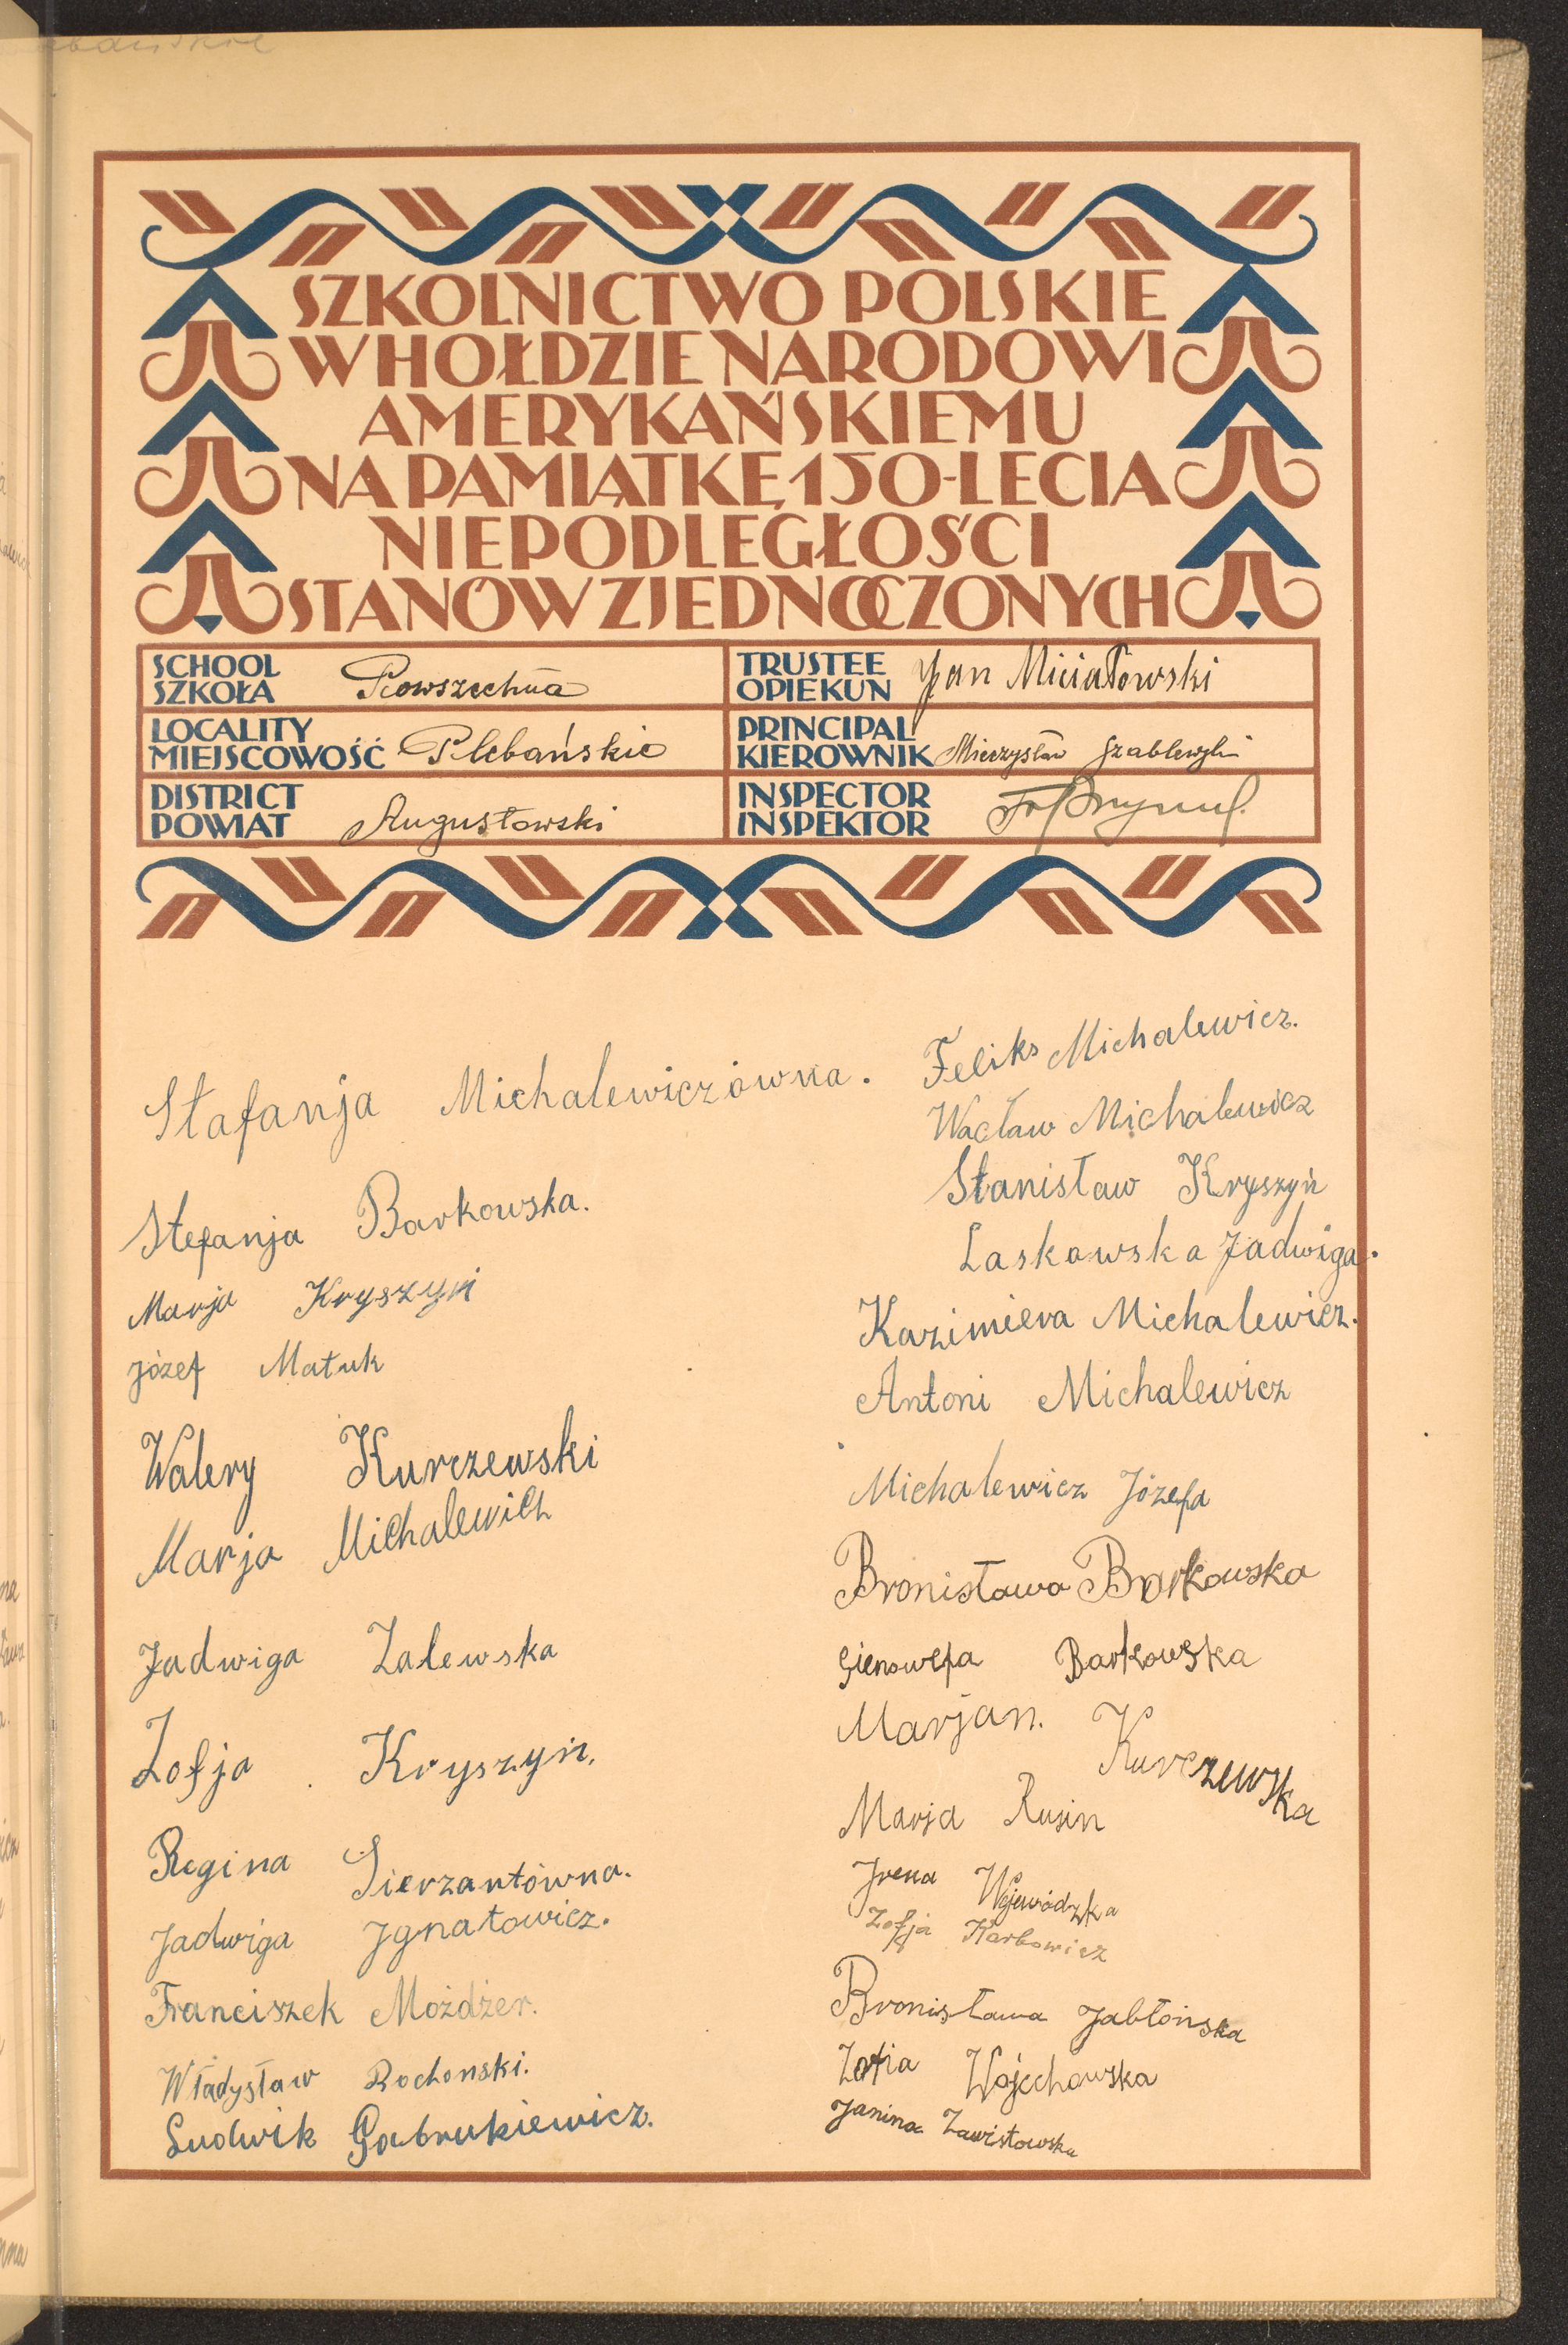 SZKOLNICTWO POLSKIE
W HOŁDZIE NARODOWI
AMERYKAŃSKIEMU
NA PAMIĄTKĘ 150-LECIA
NIEPODLEGŁOŚCI
STANÓW ZJEDNOCZONYCH
SCHOOL
SZKOŁA
Powszechna
TRUSTEE
OPIEKUN
Jan Miciałowski
LOCALITY
MIEJSCOWOŚĆ
Plebańskie
PRINCIPAL
KIEROWNIK
Mieczysław Szablewski
DISTRICT
POWIAT
Augustowski
INSPECTOR
INSPEKTOR
Stafanja Michalewiczówna.
Stefanja Barkowska.
Marja Kryszyń
Józef Matuk
Walery Kurczewski
Marja Michalewicz
Jadwiga Zalewska
Zofja Kryszyń.
Regina Sierzantówna.
Jadwiga Jgnatowicz.
Franciszek Możdżer.
Władysław Rochonski.
Ludwik Gabrukiewicz.
Feliks Michalewicz.
Wacław Michalewicz
Stanisław Kryszyń
Laskowska Jadwiga.
Kazimiera Michalewicz.
Antoni Michalewicz
Michalewicz Józefa
Bronisława Barkowska
Gienowefa Barkowska
Marjan. Kurczewska
Marja Rusin
Jrena Wojewódzka
Zofja Karbowicz
Bronisława Jabłońska
Zofia Wojechowska
Janina Zawistowska